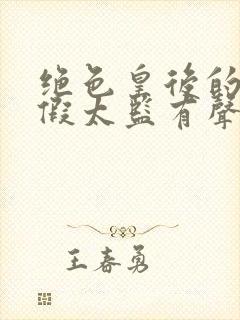 绝色皇後的
假太監有聲
王春勇